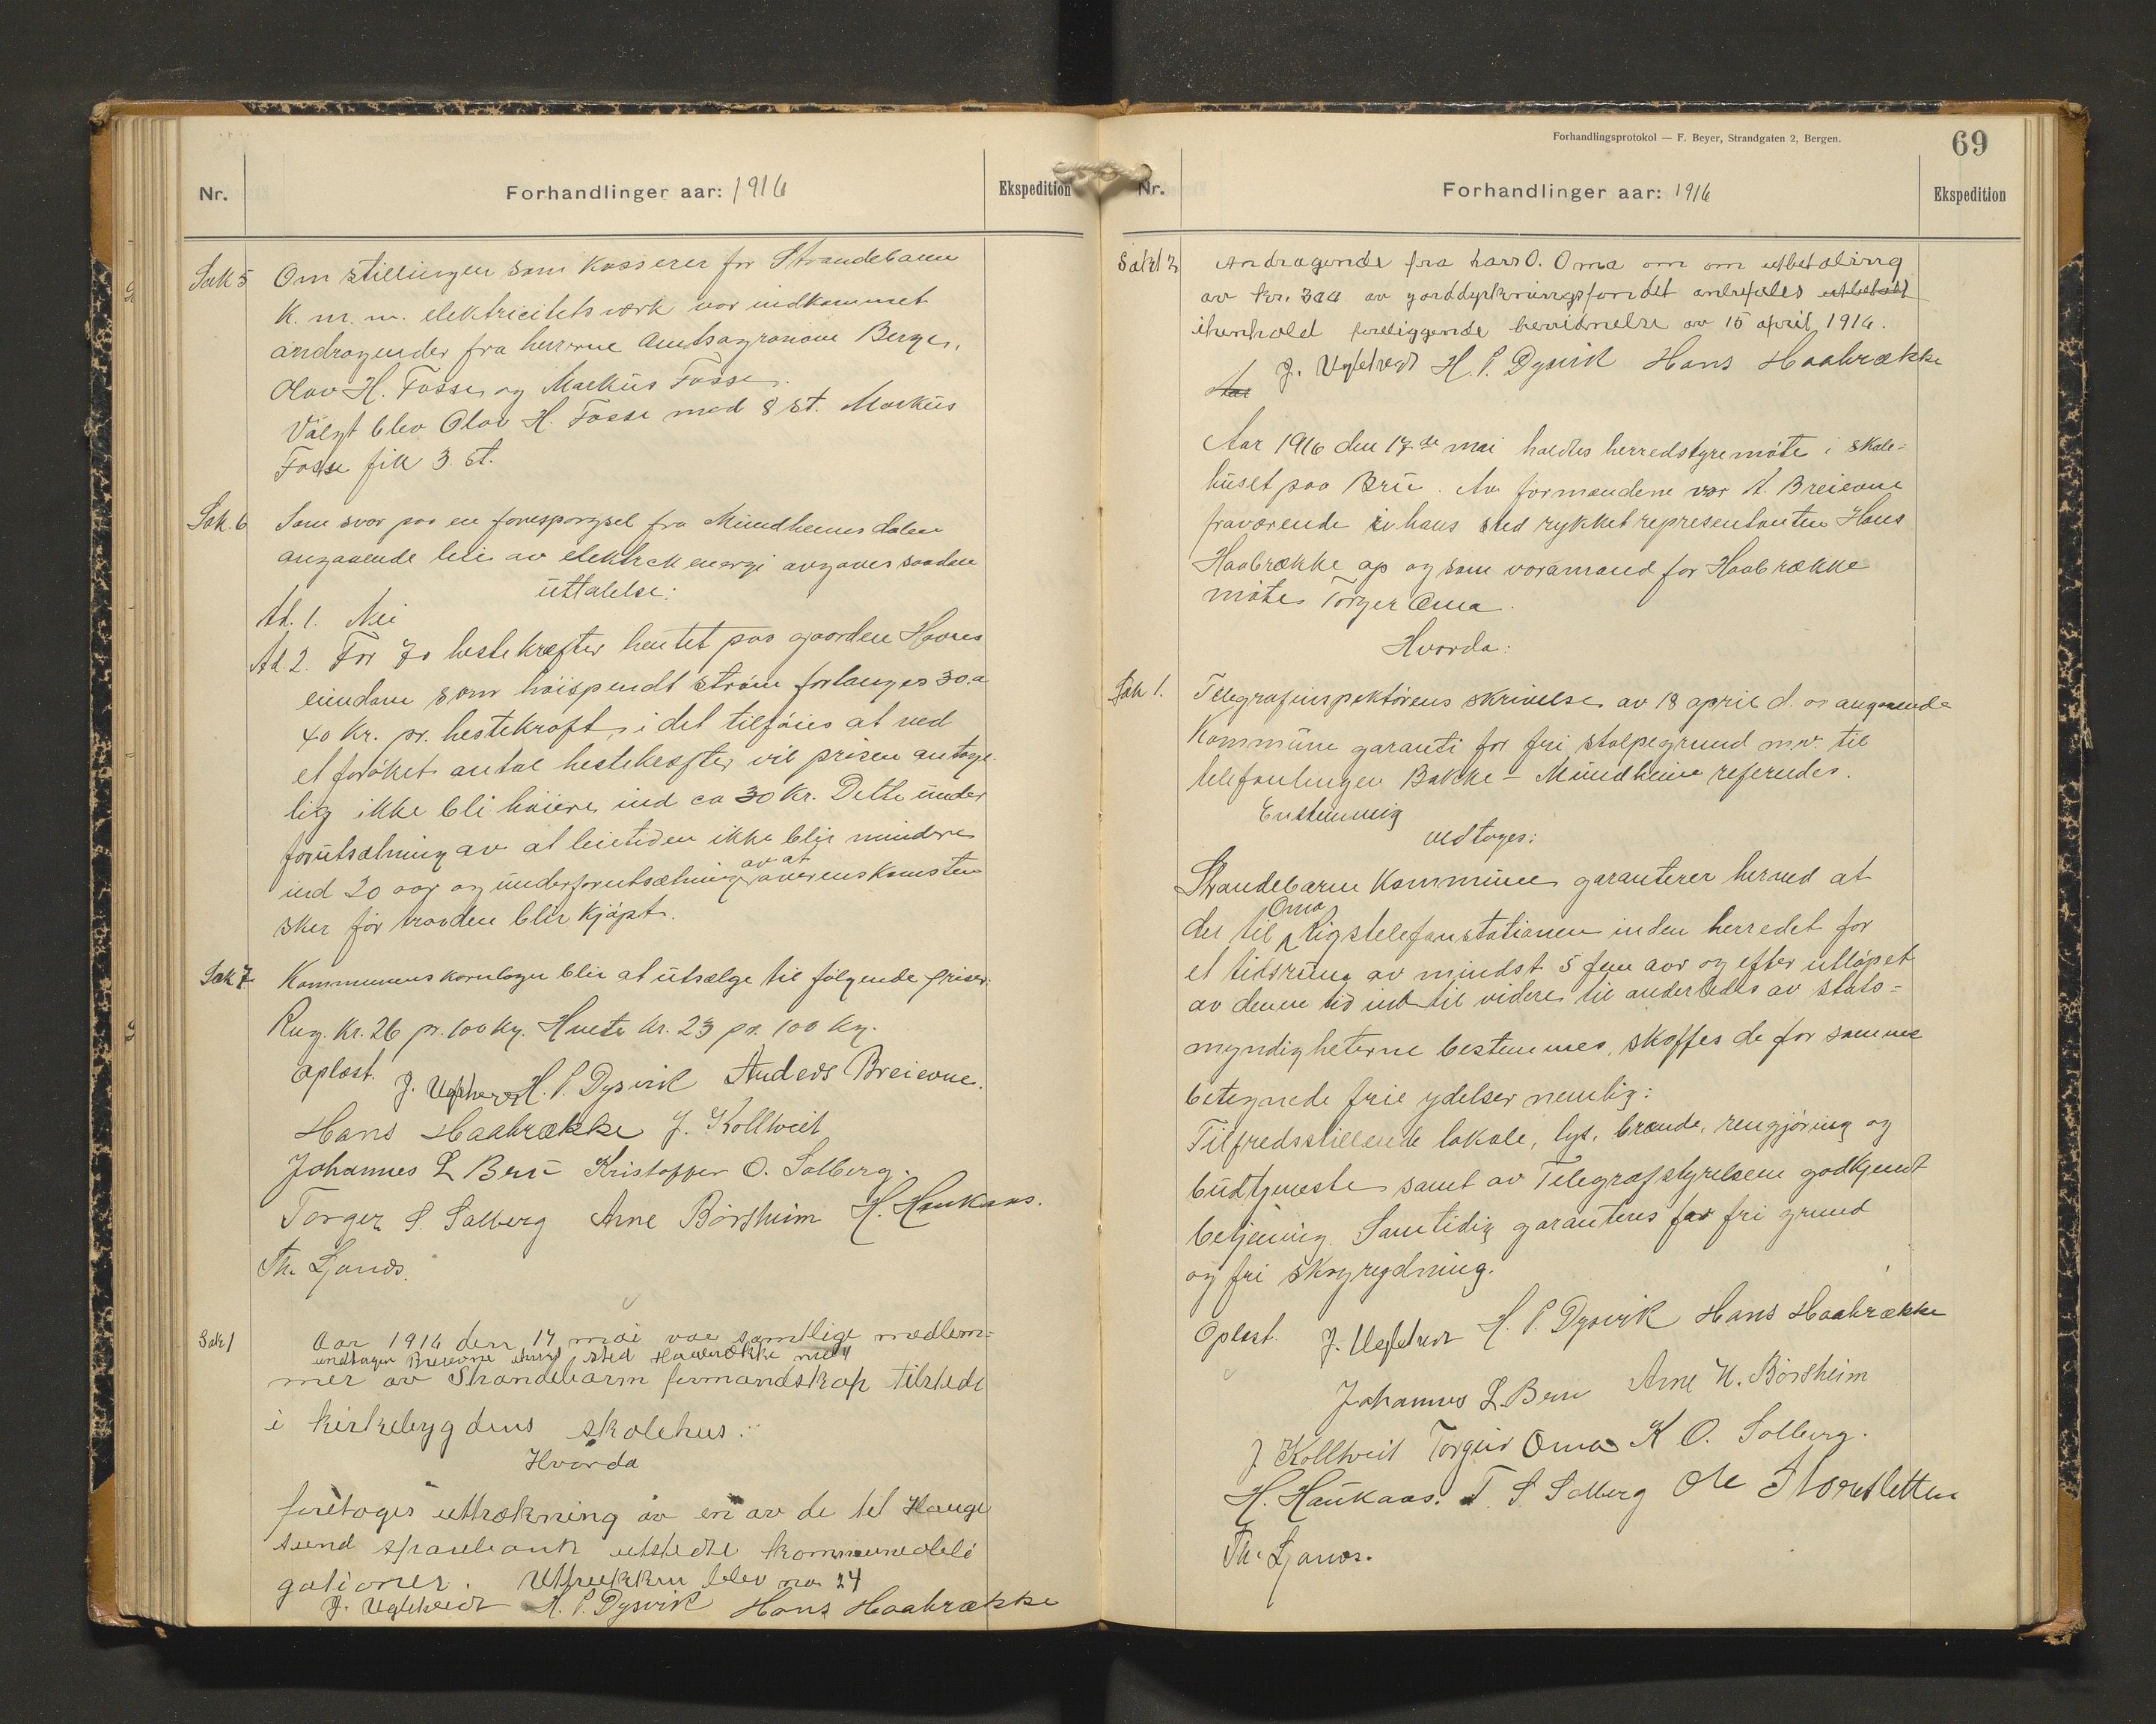 Nr.
Forhandlinger aar: 1916
Ekspedition
Sak 5 Om stillingen som kasserer for Strandebarm
K. m. m. elektricitetsværk var indkommet
andragender fra herrerne Amtsagronom Berge,
Olav H. Fosse og Markus Fosse.
Valgt blev Olav H. Fosse med 8 st. Markus
Fosse fik 3. st.
Sak. 6 Som svar paa en forespørgsel fra Mundheimsdalen
angaaende leie av elektrek energi avgaves saadan
uttalelse:
Ad. 1. Nei
Ad. 2. For 70 hestekræfter hentet paa gaarden
som høispendt strøm forlanges 30 a
40 Kr. pr. hestekraft, i det tilføies at ved
et forøket antal hestekræfter vil prisen antage-
lig ikke bli høiere ind ca 30 Kr. Dette under
forutsætning av at leietiden ikke blir mindre
ind 20 aar og under forutsætning av at overenskomsten
sker før traaden blir kjøpt.
Sak 7 Kommunens kornlager blir at utsælge til følgende priser:
Rug. Kr. 26 pr. 100 kg. Hvete kr. 23 pr. 100 kg.
Oplæst. J. Ugletveit H. P. Dysvik Anders Breievne.
Hans Haabrække J. Kolltveit
Johannes L Bru Kristoffer O. Solberg.
Torger S. Solberg Arne Børsheim H. Haukaas.
Th. Ljones.
Sak 1 Aar 1916 den 17 mai var samtlige medlem-
undtagen Breievne i hvis sted Haabrække møtt
mer av Strandebarm formandskap tilstede
i kirkebygdens skolehus.
Hvorda
foretoges uttrækning av en av de til Hauge
sund sparebank utstedte kommuneobli
gationer. Uttrukken blev no 24
J. Ugletveit H. P. Dysvik Hans Haabrække
Forhandlingsprotokol — F. Beyer, Strandgaten 2, Bergen.
69
Nr.
Forhandlinger aar: 1916
Ekspedition
Sak 2 Andragende fra Lars O. Oma om om utbetaling
av kr. 300 av jorddyrkningsfondet anbefales utbetalt
ihenhold foreliggende bevidnelse av 15 april 1916.
J. Ugletveit H. P. Dysvik Hans Haabrække
Aar
Aar 1916 den 17de mai holdtes herredstyremøte i skole-
huset paa Bru. Av formændene var A. Breievne
fraværende i hans sted rykket representanten Hans
Haabrække op og som varamand for Haabrække
møtte Torger Oma.
Hvorda:
Sak 1. Telegrafinspektørens skrivelse av 18 april d. a. angaaende
Kommune garanti for fri stolpegrund m. v. til
telefonlinjen Bakke - Mundheim referedes.
Enstemmig
vedtoges:
Strandebarm Kommune garanterer herved at
der til Oma Rigstelefonstationen inden herredet for
et tidsrum av mindst 5 fem aar og efter utløpet
av denne tid ind til videre til anderledes av stats-
myndigheterne bestemmes, skaffes de for samme
betegnede frie ydelser nemlig:
Tilfredsstillende lokale, lys, brænde, rengjøring og
budtjeneste samt av Telegrafstyrelsen godkjent
betjening. Samtidig garanteres for fri grund
og fri skogrydning.
Oplæst. J. Ugletveit H. P. Dysvik Hans Haabrække
Johannes L. Bru Arne N. Børsheim
J Kolltveit Torgeir Oma K O. Solberg.
H. Haukaas. T. S. Solberg Ole Storesletten
Th. Ljones.